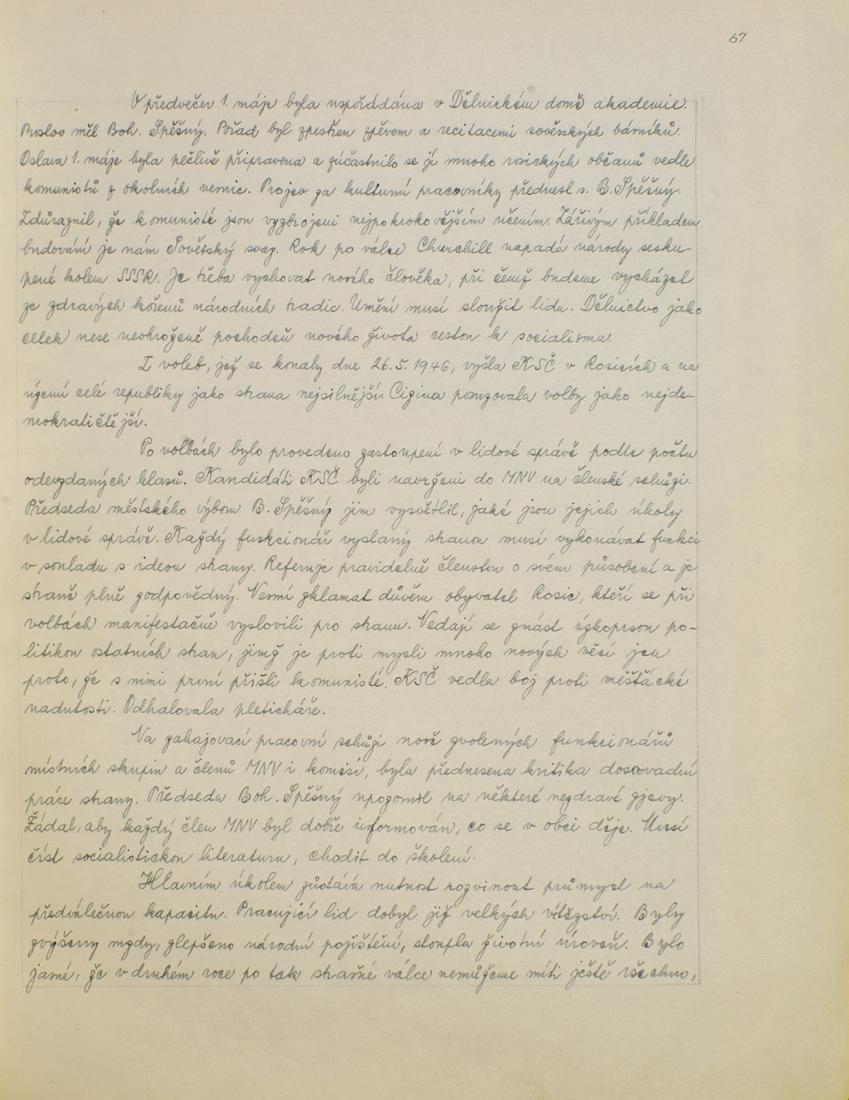 67
V předvečer 1. máje byla uspořádána v Dělnickém domě akademie.
Proslov měl Boh. Spěšný. Pořad byl zpestřen zpěvem a recitacemi sovětských básníků.
Oslava 1. máje byla pečlivě připravena a zúčastnilo se jí mnoho rosických občanů vedle
komunistů z okolních vesnic. Projev za kulturní pracovníky přednesl s. B. Spěšný.
Zdůraznil, že komunisté jsou vyzbrojeni nejpokrokovějším učením. Zářivým příkladem
budování je nám Sovětský svaz. Rok po válce Churchill napadá národy sesku-
pené kolem SSSR. Je třeba vychovat nového člověka, při čemž budeme vycházet
ze zdravých kořenů národních tradic. Umění musí sloužit lidu. Dělnictvo jako
celek nese neohroženě pochodeň nového života cestou k socialismu.
Z voleb, jež se konaly dne 26.5.1946, vyšla KSČ v Rosicích a na
území celé republiky jako strana nejsilnější. Cizina posuzovala volby jako nejde-
mokratičtější.
Po volbách bylo provedeno zastoupení v lidové správě podle počtu
odevzdaných hlasů. Kandidáti KSČ byli navrženi do MNV na členské schůzi.
Předseda městského výboru B. Spěšný jim vysvětlil, jaké jsou jejich úkoly
v lidové správě. Každý funkcionář vyslaný stranou musí vykonávat funkci
v souladu s ideou strany. Referuje pravidelně členstvu o svém působení a je
straně plně zodpovědný. Nesmí zklamat důvěru obyvatel Rosic, kteří se při
volbách manifestačně vyslovili pro stranu. Nedají se zmást úzkoprsou po-
litikou ostatních stran, jimž je proti mysli mnoho nových věcí jen
proto, že s nimi první přišli komunisté. KSČ vedla boj proti měšťácké
nadutosti. Odhalovala pletichaře.
Na zahajovací pracovní schůzi nově zvolených funkcionářů
místních skupin a členů MNV i komisí, byla přednesena kritika dosavadní
práce strany. Předseda Boh. Spěšný upozornil na některé nezdravé zjevy.
Žádal, aby každý člen MNV byl dobře informován, co se v obci děje. Musí
číst socialistickou literaturu, chodit do školení.
Hlavním úkolem zůstává nutnost rozvinout průmysl na
předválečnou kapacitu. Pracující lid dobyl již velkých vítězství. Byly
zvýšeny mzdy, zlepšeno národní pojištění, stoupla životní úroveň. Bylo
jasné, že v druhém roce po tak strašné válce nemůžeme míti ještě všechno,